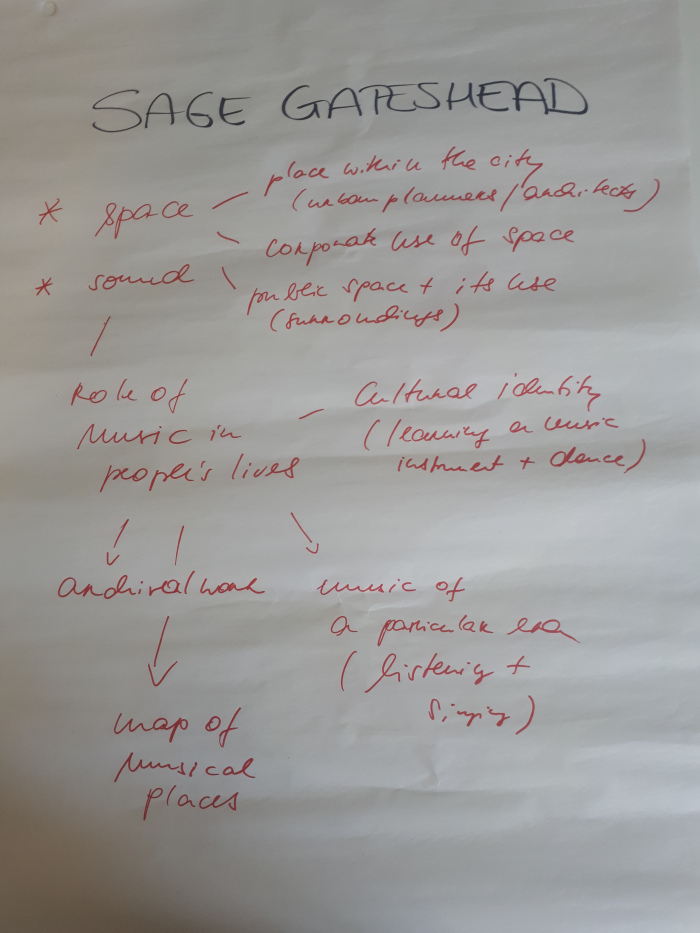 SAGE GATESHEAD
* space — place within the city
(urban planners/architects)
corporate use of space
* sound
public space + its use
(surroundings)
Role of
music in
people's lives
— Cultural identity
(learning a music
instrument + dance)
archival work
music of
a particular era
(listening +
singing)
map of
musical
places